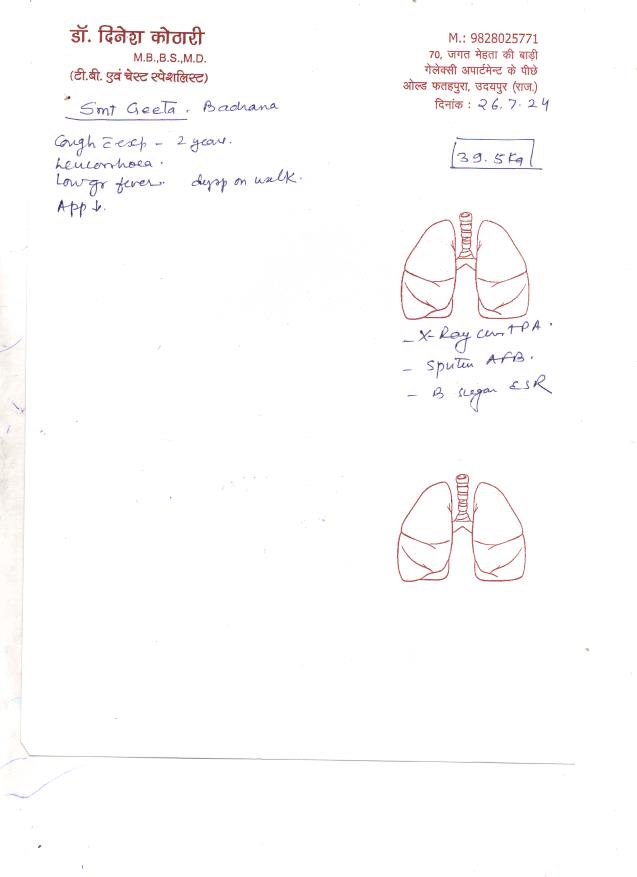 डॉ. दिनेश कोठारी
M.B.,B.S.,M.D.
(टी.बी. एवं चेस्ट स्पेशलिस्ट)
M.: 9828025771
70, जगत मेहता की बाड़ी
गेलेक्सी अपार्टमेन्ट के पीछे
ओल्ड फतहपुरा, उदयपुर (राज.)
दिनांक : 26.7.24
Smt Geeta. Badrana
39.5Kg
Cough c̄ exp - 2 years.
Leucorrhoea.
Low gr fever. dysp on walk.
App ↓.
- X-Ray PA.
- Sputum AFB.
- B sugar ESR